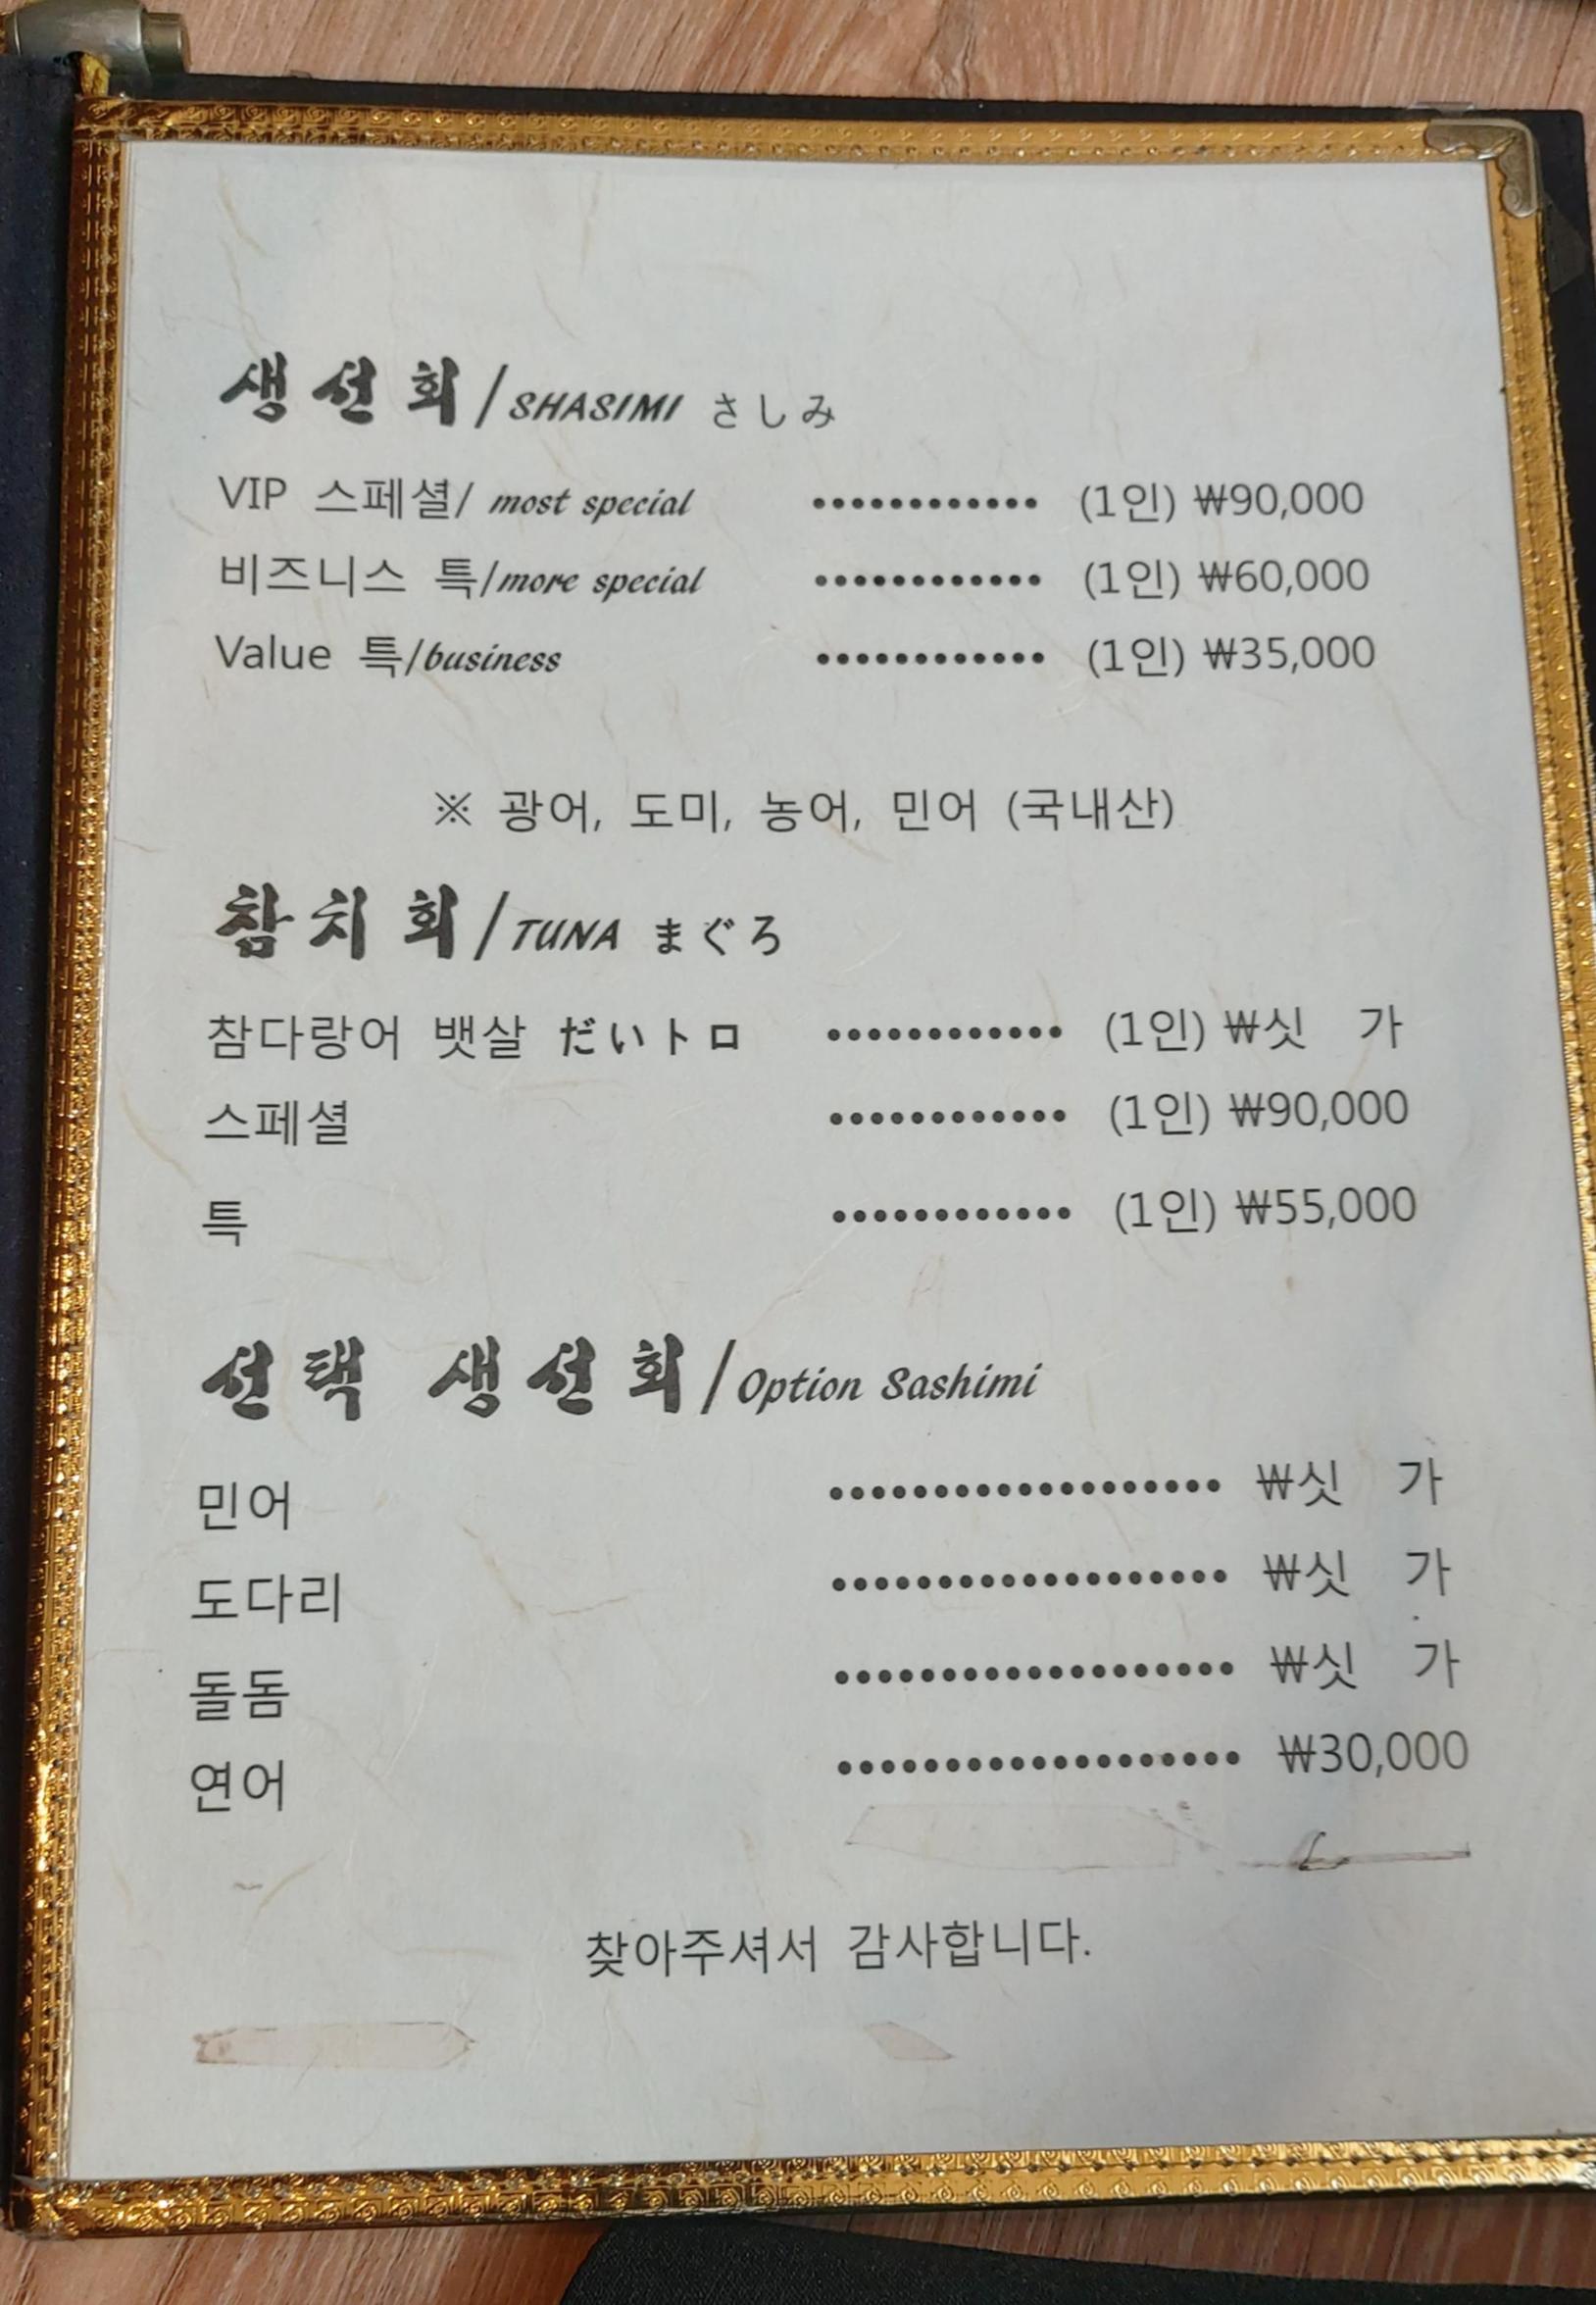 생선회/SHASIMI さしみ
VIP 스페셜/ most special ············ (1인) ₩90,000
비즈니스 특/more special ············ (1인) ₩60,000
Value 특/business ············ (1인) ₩35,000
※ 광어, 도미, 농어, 민어 (국내산)
참치회/TUNA まぐろ
참다랑어 뱃살 だいトロ ············ (1인) ₩싯 가
스페셜 ············ (1인) ₩90,000
특 ············ (1인) ₩55,000
선택 생선회/Option Sashimi
민어 ··················· ₩싯 가
도다리 ··················· ₩싯 가
돌돔 ··················· ₩싯 가
연어 ··················· ₩30,000
찾아주셔서 감사합니다.